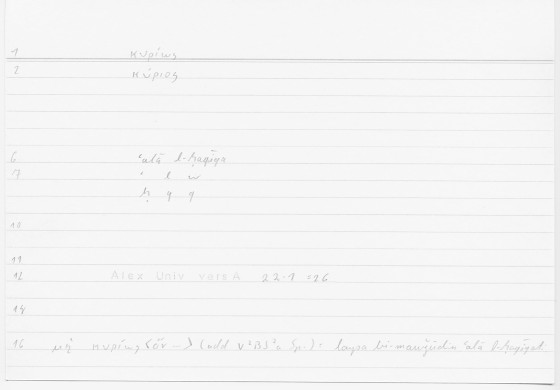 1 κυρίως
2 κύριος
6 ʿalā l-ḥaqīqa
7 ʿ l w
ḥ q q
10
11
12 Alex Univ versA 22.1 = 26
14
16 μὴ κυρίως <ὄν → (add V²B3²: laysa bi-mawǧūdin ʿalā l-ḥaqīqati